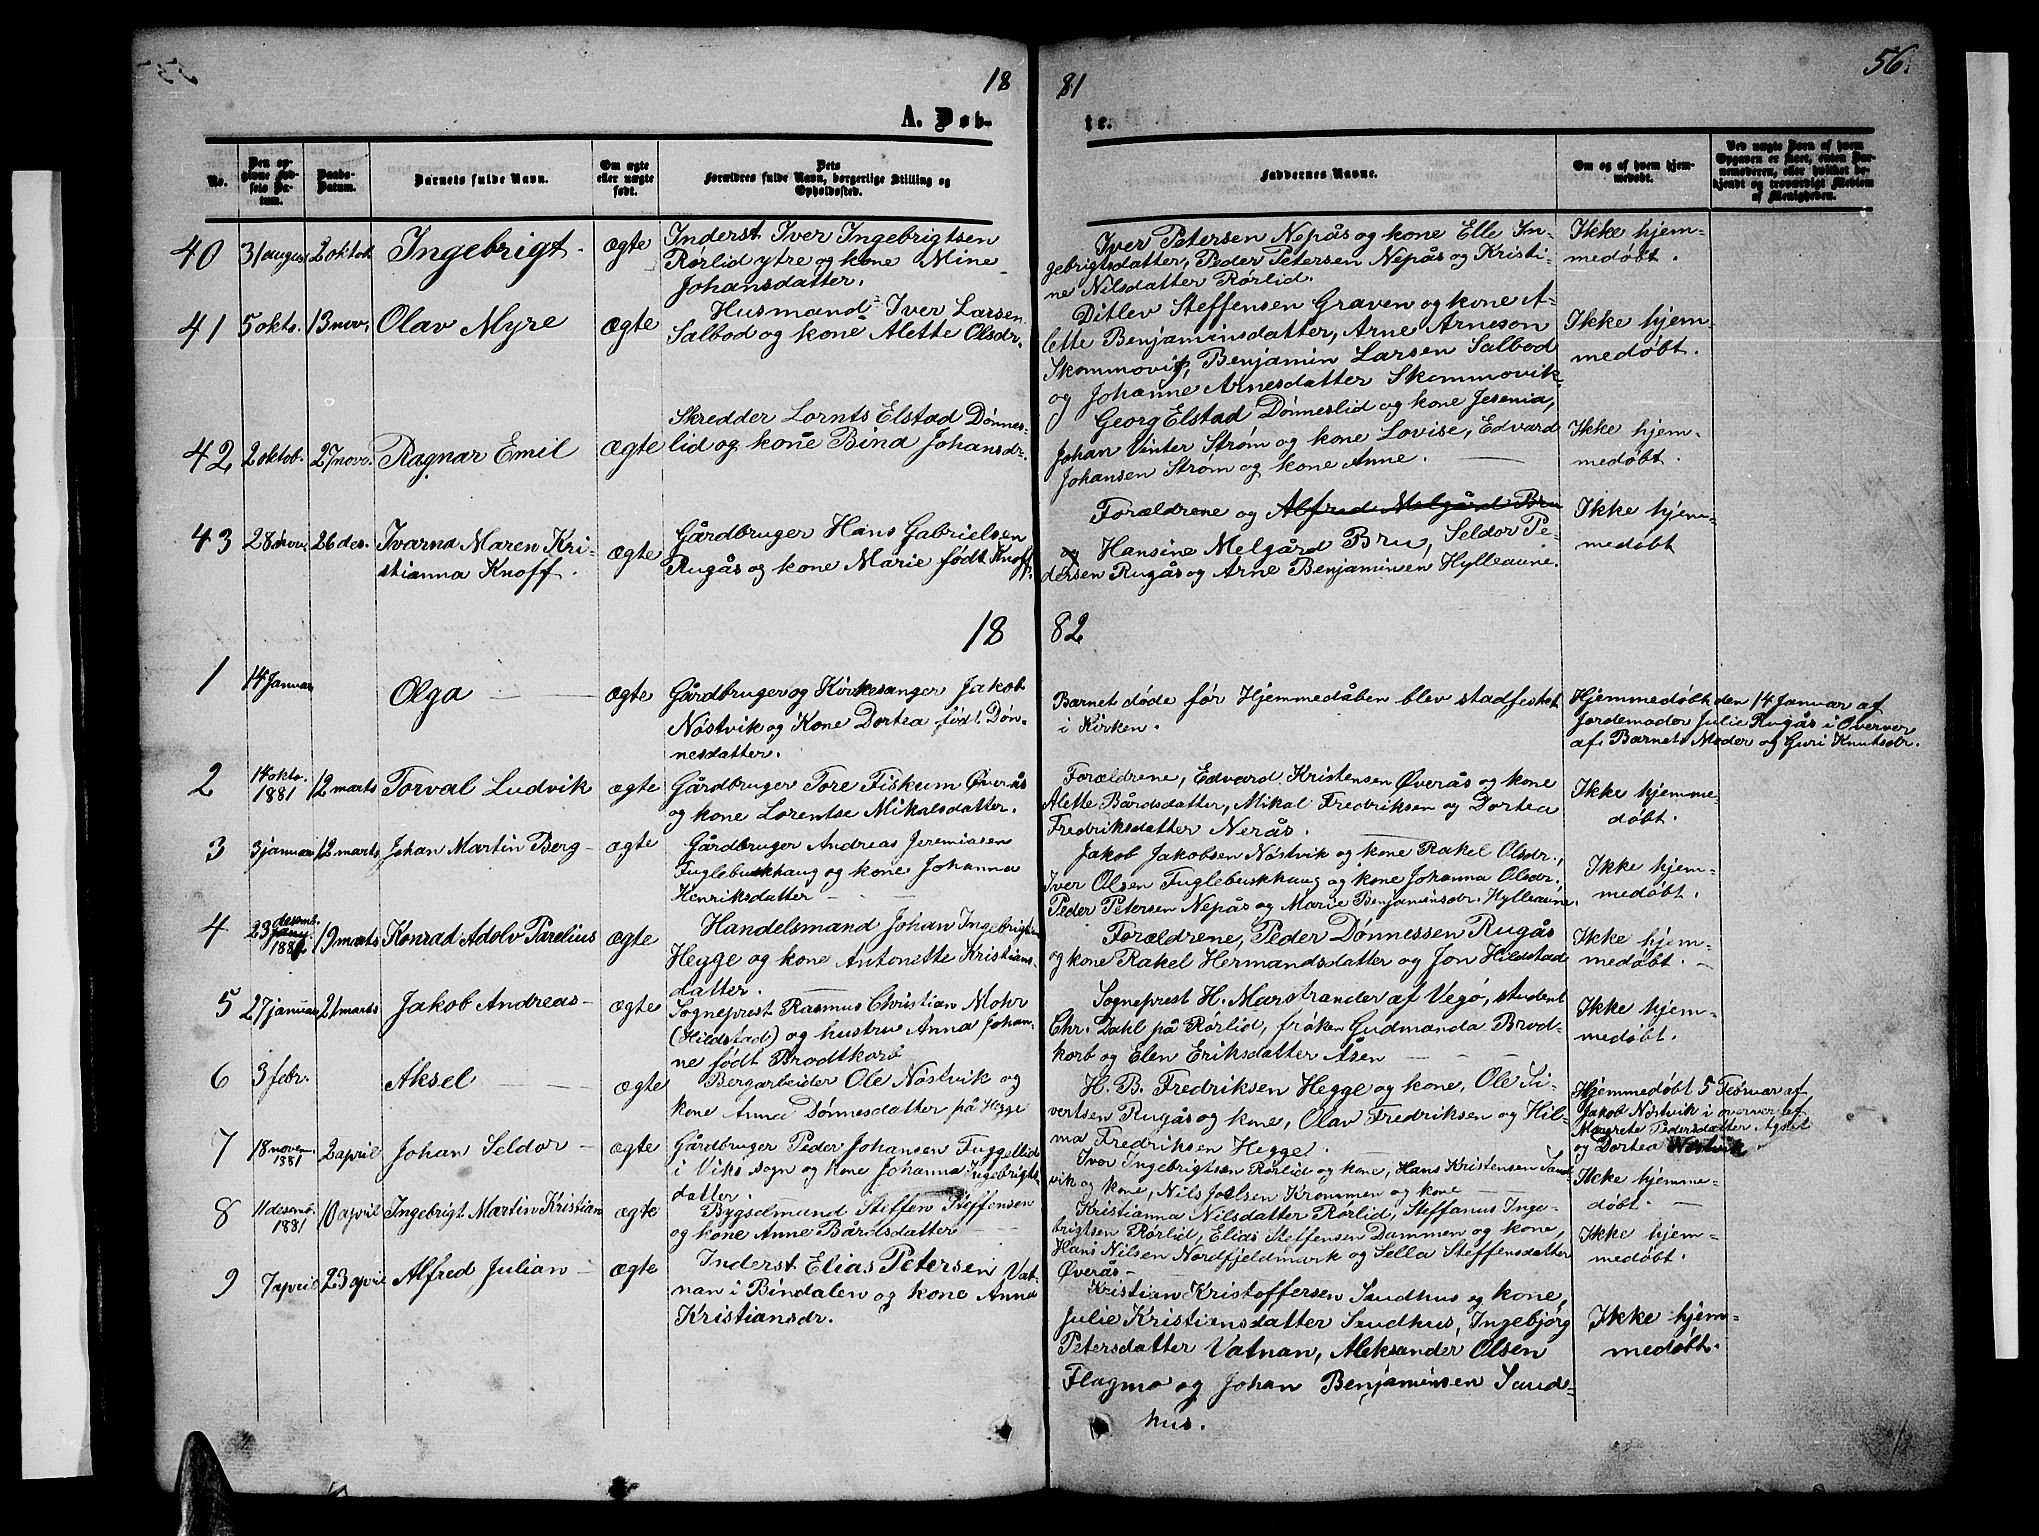 18 81 56.
A. Døb- te.
No. Den opgivne Fødsels Datum. Daabs-Datum. Barnets fulde Navn. Om ægte eller uægte født. Dets Forældres fulde Navn, borgerlige Stilling og Opholdssted. Faddernes Navne. Om og af hvem hjemmedøbt. Ved uægte Børn af hvem Opgaven er skeet, enten Barnemoderen, eller hvilket bekjendt og troværdigt Medlem af Menigheden.
40 31 august 2 oktob. Ingebrigt - ægte
Inderst Iver Ingebrigtsen
Rørlid ytre og kone Mine
Johansdatter.
Iver Petersen Nepås og kone Elle In-
gebrigtsdatter, Peder Petersen Nepås og Kristi-
ne Nilsdatter Rørlid.
Ikke hjem-
medøbt.
41 5 okto. 13 nov. Olav Myre ægte
Husmand Iver Larsen
Salbod og kone Alette Olsdr.
Ditlev Steffensen Graven og kone A-
lette Benjaminsdatter, Arne Arneson
Skommovik, Benjamin Larsen Salbod
og Johanne Arnesdatter Skommovik.
Ikke hjem-
medøbt.
42 2 oktob. 27 nov. Ragnar Emil ægte
Skredder Lornts Elstad Dønnes-
lid og kone Bina Johansdr.
Georg Elstad Dønneslid og kone Jesenia,
Johan Vinter Strøm og kone Lovise, Edvard
Johansen Strøm og kone Anne.
Ikke hjem-
medøbt.
43 28 nov. 26 des. Ivarna Maren Kri-
stianna Knoff. ægte
Gårdbruger Hans Gabrielsen
Rugås og kone Marie født Knoff.
Forældrene og Alfred Melgård Bru
og Hansine Melgård Bru, Seldor Pe-
dersen Rugås og Arne Benjaminsen Hylleaune.
Ikke hjem-
medøbt
18 82
1 14 Januar Olga ægte
Gårdbruger og Kirkesanger Jakob
Nøstvik og Kone Dortea født Døn-
nesdatter.
Barnet døde før Hjemmedåben blev stadfestet
i Kirken.
Hjemmedøbt den 14 Januar af
Jordemoder Julie Rugås i Overvær
af Barnets Moder og Guri Knutsdr.
2 14 okto. 1881 12 marts Torval Ludvik ægte
Gårdbruger Tore Fiskum Øverås
og kone Lorentse Mikalsdatter.
Forældrene, Edvard Kristensen Øverås og kone
Alette Bårdsdatter, Mikal Fredriksen og Dortea
Fredriksdatter Nerås.
Ikke hjemme-
døbt.
3 3 januar 12 marts Johan Martin Berg - ægte
Gårdbruger Andreas Jeremiasen
Fuglebuskhaug og kone Johanna
Henriksdatter
Jakob Jakobsen Nøstvik og kone Rakel Olsdr.,
Iver Olsen Fuglebuskhaug og kone Johanna Olsdr.,
Peder Petersen Nepås og Marie Benjaminsdr. Hylleaune.
Ikke hjem-
medøbt.
4 23 desemb. 1881 19 marts Konrad Adolv Parelius ægte
Handelsmand Johan Ingebrigtsen
Hegge og kone Antonette Kristians-
datter.
Forældrene, Peder Dønnessen Rugås
og kone Rakel Hermandsdatter og Jon Hildstad
Ikke hjem-
medøbt.
5 27 januar 21 marts Jakob Andreas - ægte
Sogneprest Rasmus Christian Mohr
(Hildstad) og hustru Anna Johan-
ne født Brodtkorb
Sogneprest H. Marstrander af Vegø, student
Chr. Dahl på Rørlid, frøken Gudmanda Brod-
korb og Elen Eriksdatter Åsen
Ikke hjem-
medøbt.
6 3 febr. Aksel ægte
Bergarbeider Ole Nøstvik og
kone Anna Dønnesdatter på Hegge
H. B. Fredriksen Hegge og kone, Ole Si-
vertsen Rugås og kone, Olav Fredriksen og Hil-
ma Fredriksen Hegge.
Hjemmedøbt 5 Februar af
Jakob Nøstvik i overvær af
Margrete Pedersdatter
og Dortea Nøstvik
7 18 novem. 1881 2 april Johan Seldor - ægte
Gårdbruger Peder Johansen Fuggellid
i Viks sogn og kone Johanna Ingebrigts-
datter.
Iver Ingebrigtsen Rørlid og kone, Hans Kristensen Sand-
vik og kone, Nils Joelsen Krommen og kone
Ikke hjemme-
døbt.
8 11 desemb. 1881 10 april Ingebrigt Martin Kristian ægte
Bygselmand Steffen Steffensen
og kone Anne Bårdsdatter
Kristianna Nilsdatter Rørlid, Steffanus Inge-
brigtsen Rørlid, Elias Steffensen Dammen og kone,
Hans Nilsen Nordfjeldmark og Sella Steffensdatter
Øverås
Ikke hjem-
medøbt.
9 7 april 23 april Alfred Julian - ægte
Inderst Elias Petersen Vat-
nan i Bindalen og kone Anna
Kristiansdr.
Kristian Kristoffersen Sandhus og kone,
Julie Kristiensdatter Sandhus, Ingebjørg
Petersdatter Vatnan, Aleksander Olsen
Flagmo og Johan Benjaminsen Sand-
hus.
Ikke hjem-
medøbt.